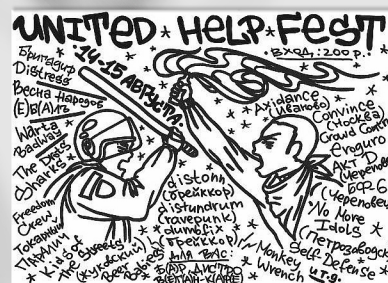 UNITED * HELP * FEST
ВХОД: 200 Р.
14-15 АВГУСТА
Бригадир
Distress
Весна Народов
(Е)В(А)
Warta
Badway
The Dead
Sharks
Freedom
Crew
Токарный
Паралич
Kids of
the Streets
(Жуковский)
Beer Babies
distohn
(брейккор)
distundrum
(ravepunk)
dumbfix
(брейккор)
для вас:
Axidance
(Иваново)
Convince
(Москва)
Grand Comin
enguro
Акт D
(Черепо
БФ-С
(Черепове
No More
Idols
(Петрозаводск
Self Defense
и т.д.
Monkey
Wrench